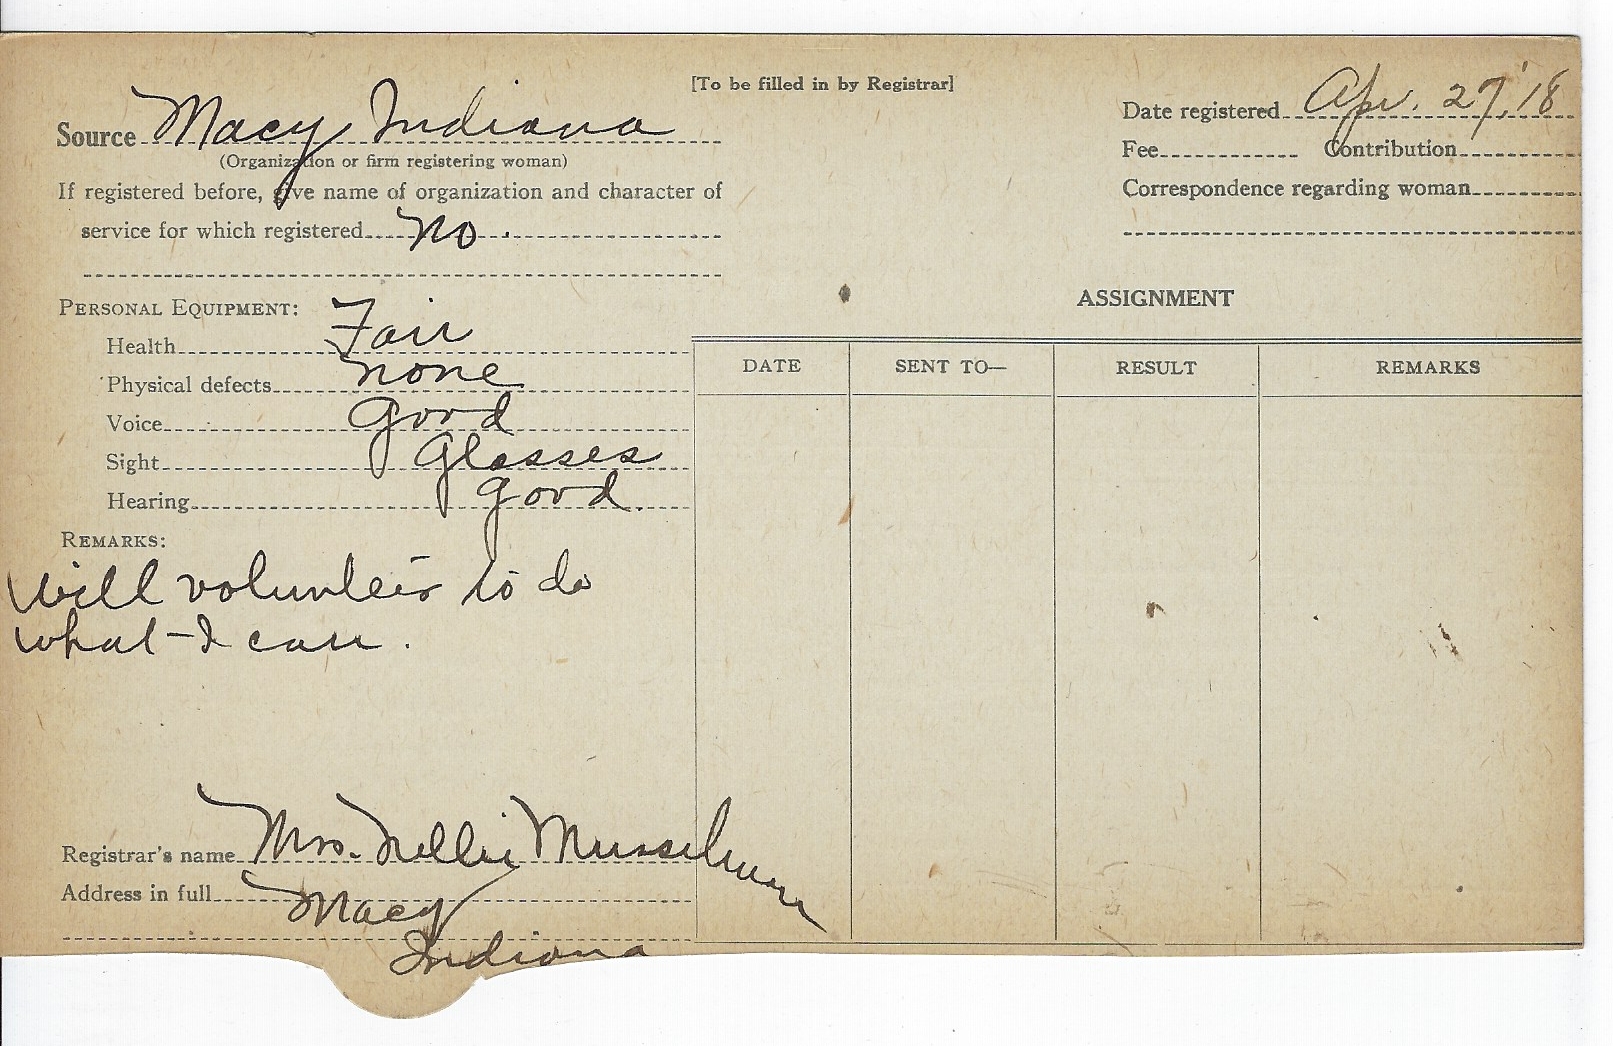 [To be filled in by Registrar]
Source Macy Indiana
(Organization or firm registering woman)
If registered before, give name of organization and character of
service for which registered No.
Date registered Apr. 27, '18
Fee Contribution
Correspondence regarding woman
PERSONAL EQUIPMENT:
Health Fair
Physical defects none
Voice Good
Sight Glasses
Hearing good.
REMARKS:
Will volunteer to do
what I can.
Registrar's name Mrs. Nellie Musselman
Address in full Macy
Indiana
ASSIGNMENT
DATE SENT TO— RESULT REMARKS